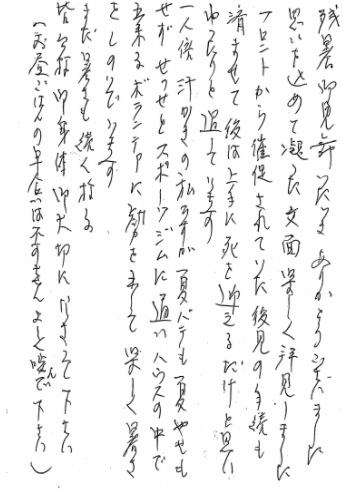 残暑御見舞いたゞき ありがとうございました
思いを込めて凝った文面 楽しく拝見しました
フロントから催促されていた後見の手続も
済ませて 後は上手に死を迎えるだけと思い
ゆったりと過しています
一人倍汗かきの私ですが 夏バテも夏やせも
せず せっせとスポーツジムに通い ハウスの中で
出来るボランティアに励んで 楽しく暑さ
をしのいでいます
まだ暑さも続く様
皆々様 御身体御大切になさって下さい
(お昼ごはんの予定は不要ませんよと 下さい)